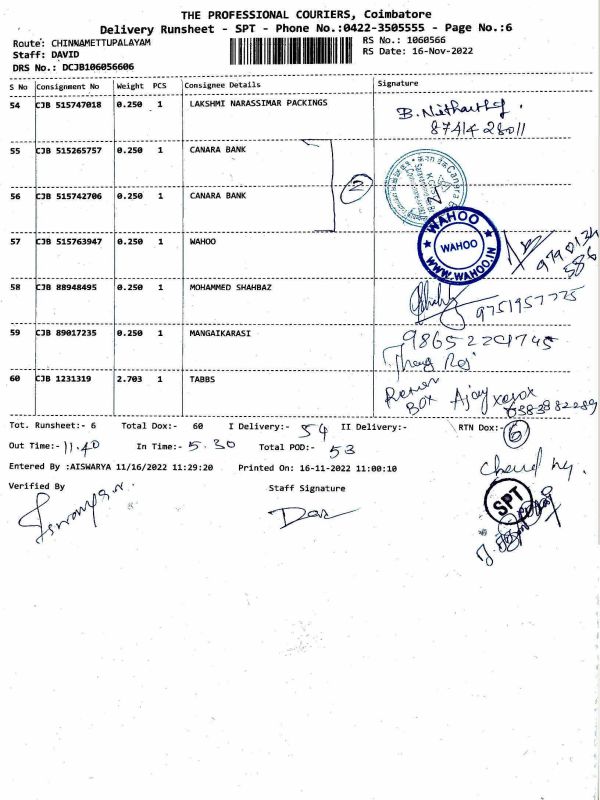 THE PROFESSIONAL COURIERS, Coimbatore
Delivery Runsheet - SPT - Phone No.:0422-3505555 - Page No.:6
Route: CHINNAMETTUPALAYAM
RS No.: 1060566
Staff: DAVID
RS Date: 16-Nov-2022
DRS No.: DCJB106056606
S No Consignment No Weight PCS Consignee Details Signature
54 CJB 515747018 0.250 1 LAKSHMI NARASSIMAR PACKINGS
8741428011
55 CJB 515265757 0.250 1 CANARA BANK
2
56 CJB 515742706 0.250 1 CANARA BANK
57 CJB 515763947 0.250 1 WAHOO
WAHOO
WAHOO
WWW.WAHOO.IN
58 CJB 88948495 0.250 1 MOHAMMED SHAHBAZ
9751957775
59 CJB 89017235 0.250 1 MANGAIKARASI
Thang Raj
60 CJB 1231319 2.703 1 TABBS
BOX Ajay xerox
Tot. Runsheet:- 6 Total Dox:- 60 I Delivery:- 54 II Delivery:- RTN Dox:- 6
Out Time:- 11.40 In Time:- 5.30 Total POD:- 53
Entered By :AISWARYA 11/16/2022 11:29:20 Printed On: 16-11-2022 11:00:10
Verified By Staff Signature
SPT